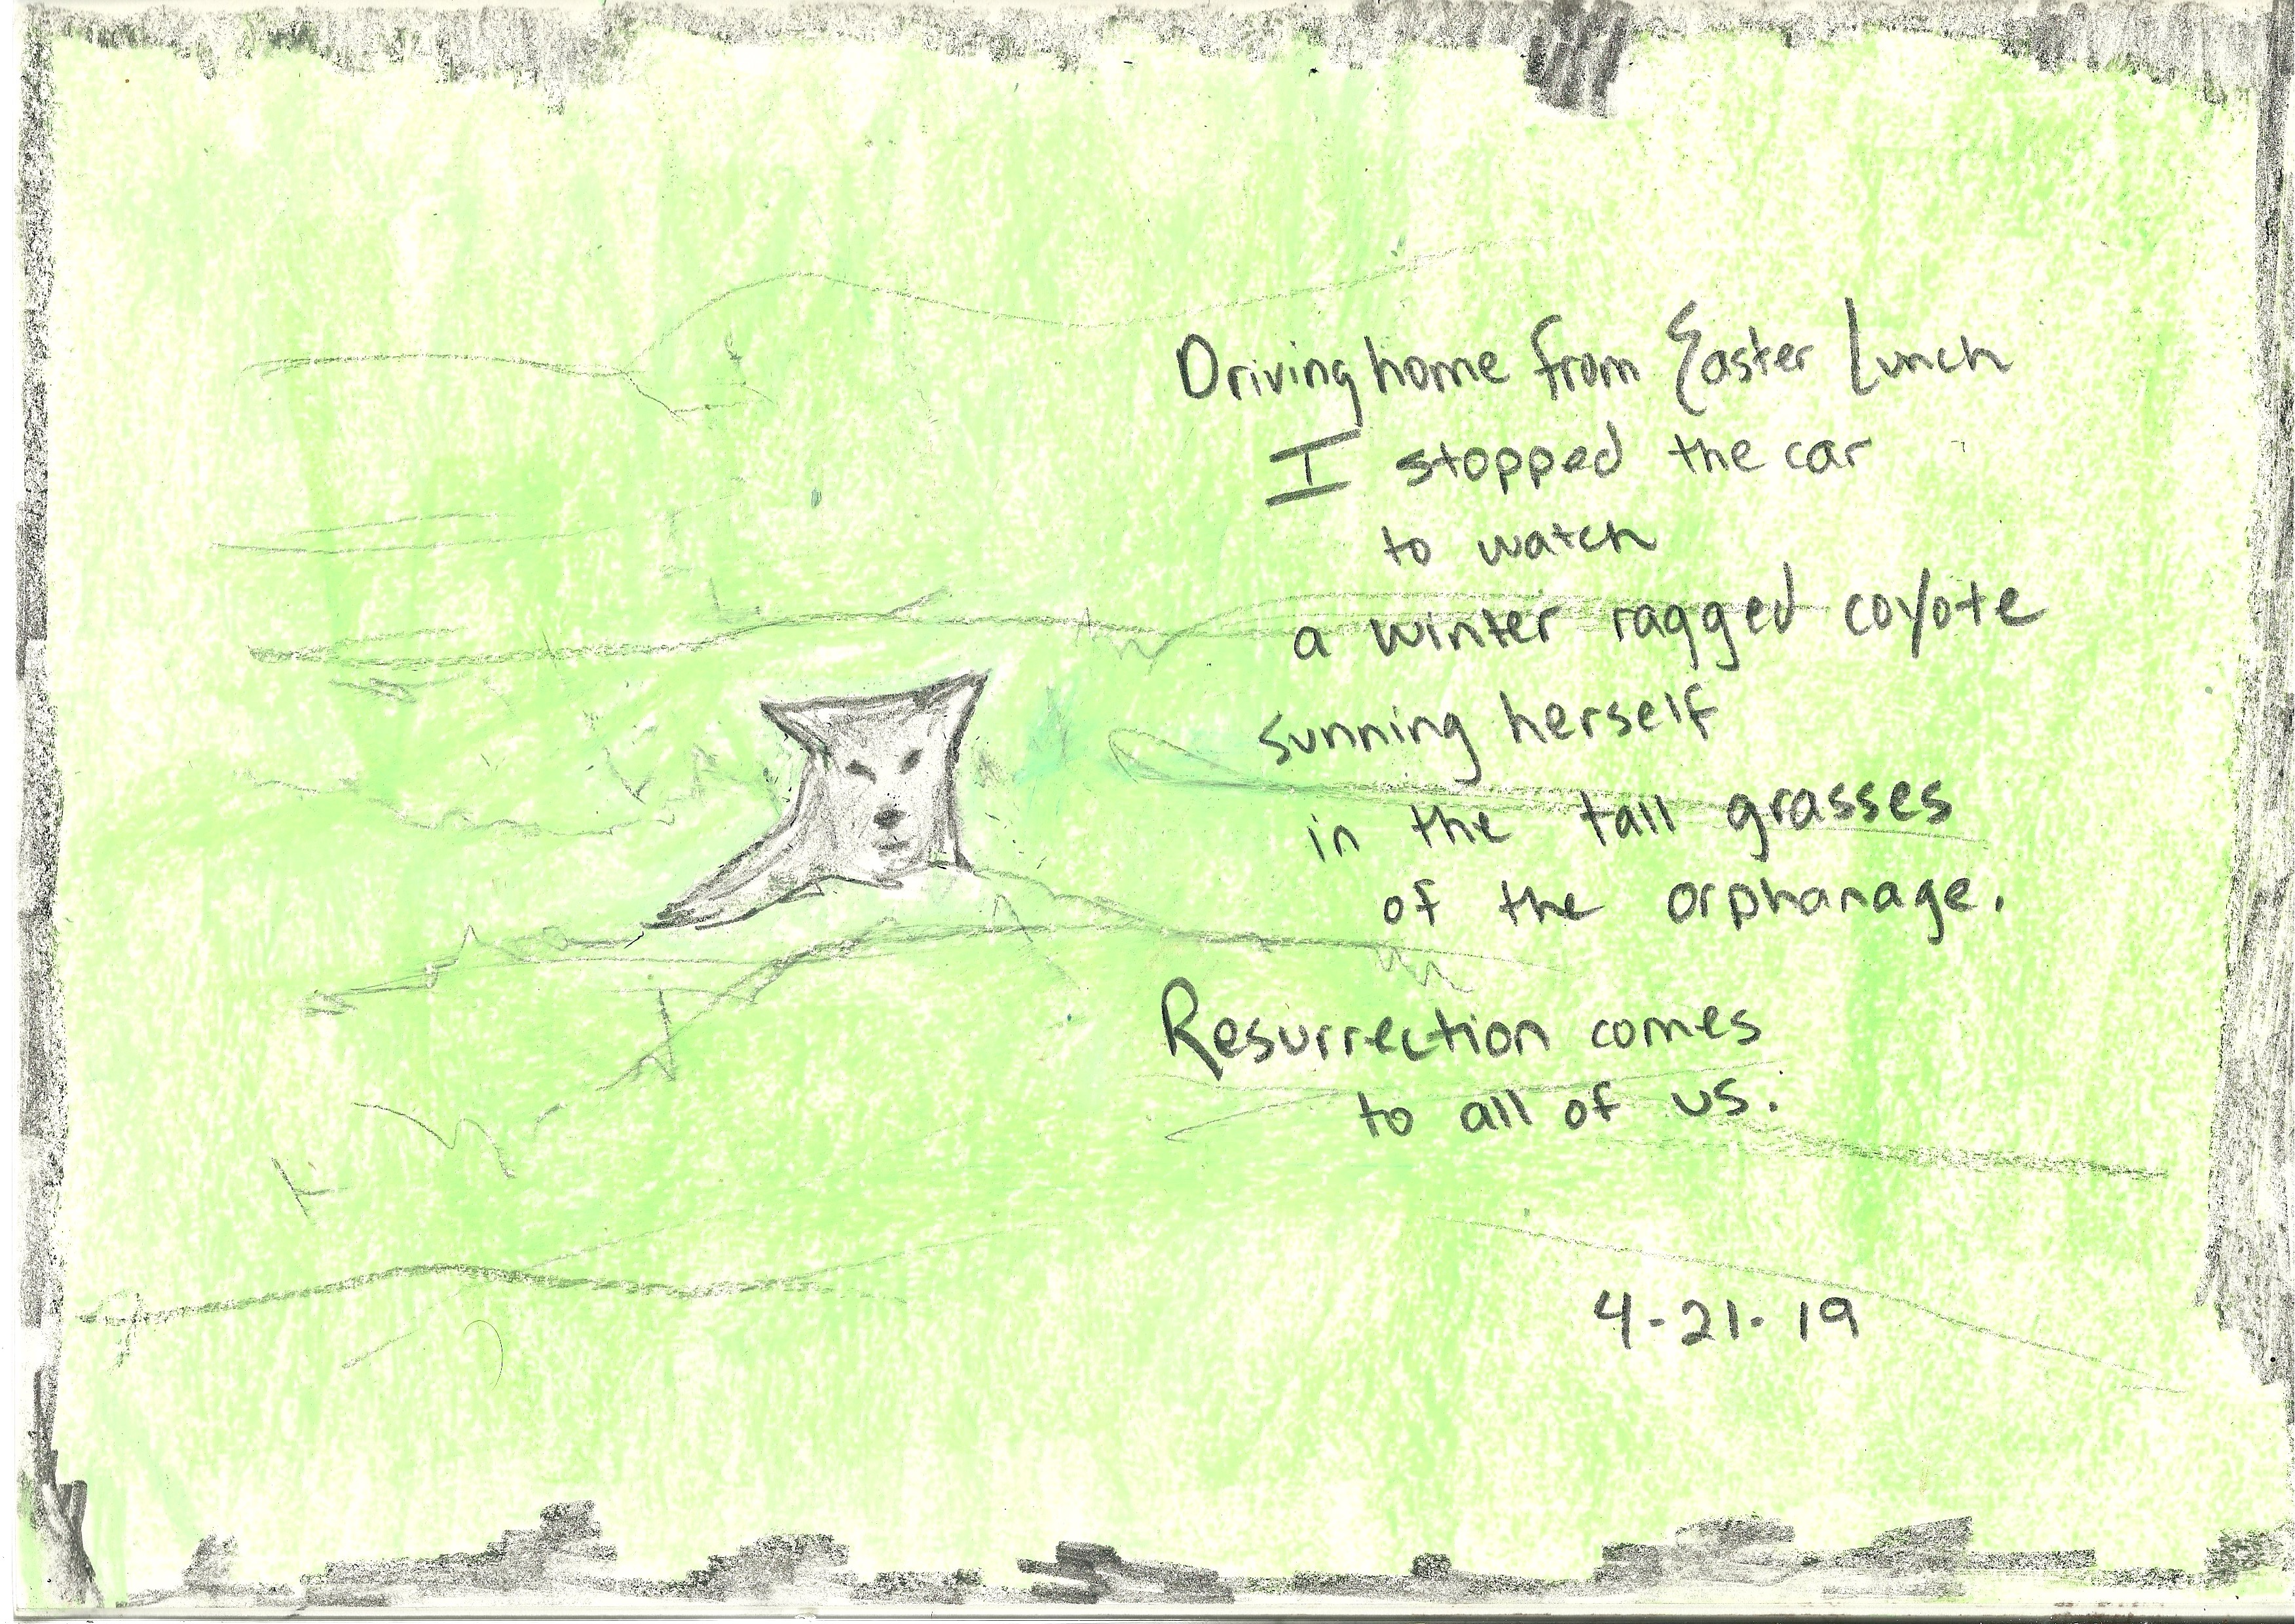 Driving home from Easter Lunch
I stopped the car
to watch
a winter ragged coyote
sunning herself
in the tall grasses
of the orphanage.
Resurrection comes
to all of us.
4-21-19